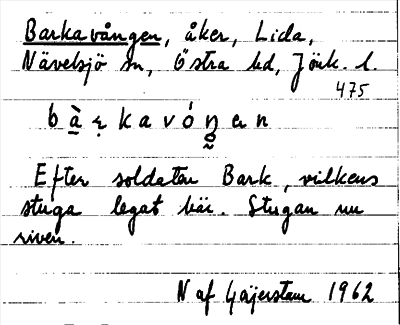 Barkavången, åker, Lida,
Nävelsjö sn, Östra hd, Jönk. l.
475
bàrkavóŋen
Efter soldaten Bark, vilkens
stuga legat här. Stugan nu
riven.
N af Geijerstam 1962